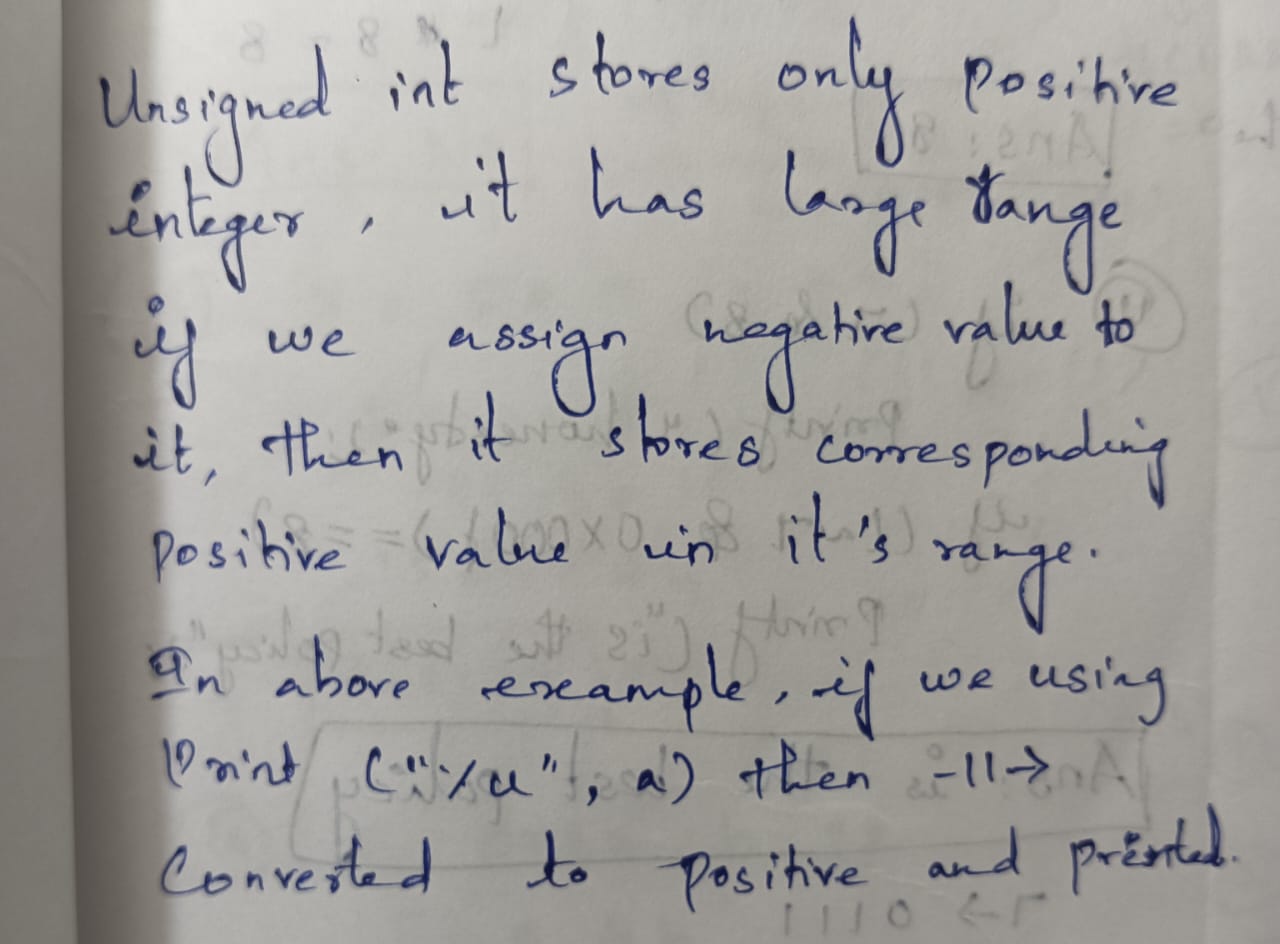 Unsigned int stores only positive
integer, it has large range
if we assign negative value to
it, then it stores corresponding
positive value in it's range.
In above example, if we using
Print ("%u", a) then -11→
Converted to positive and printed.